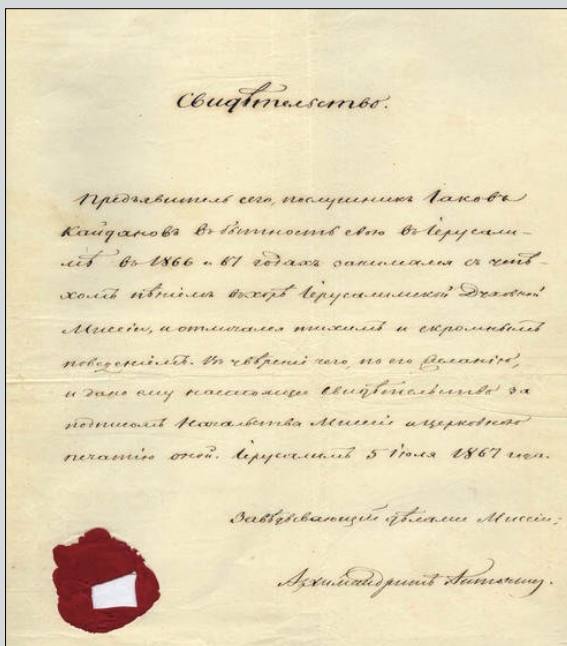 Свидѣтельство.
Предъявитель сего, послушникъ Іаковъ
Кайдановъ въ бытность свою въ Іерусали-
мѣ въ 1866 и 67 годахъ занимался съ успѣ-
хомъ пѣніемъ въ хорѣ Іерусалимской Духовной
Миссіи, и отличался тихимъ и скромнымъ
поведеніемъ. Въ увѣреніе чего, по его желанію,
и дано ему настоящее свидѣтельство за
подписомъ Начальства Миссіи и церковною
печатію оной. Іерусалимъ 5 Іюля 1867 года.
Завѣдывающій дѣлами Миссіи:
Архимандритъ Антонинъ.